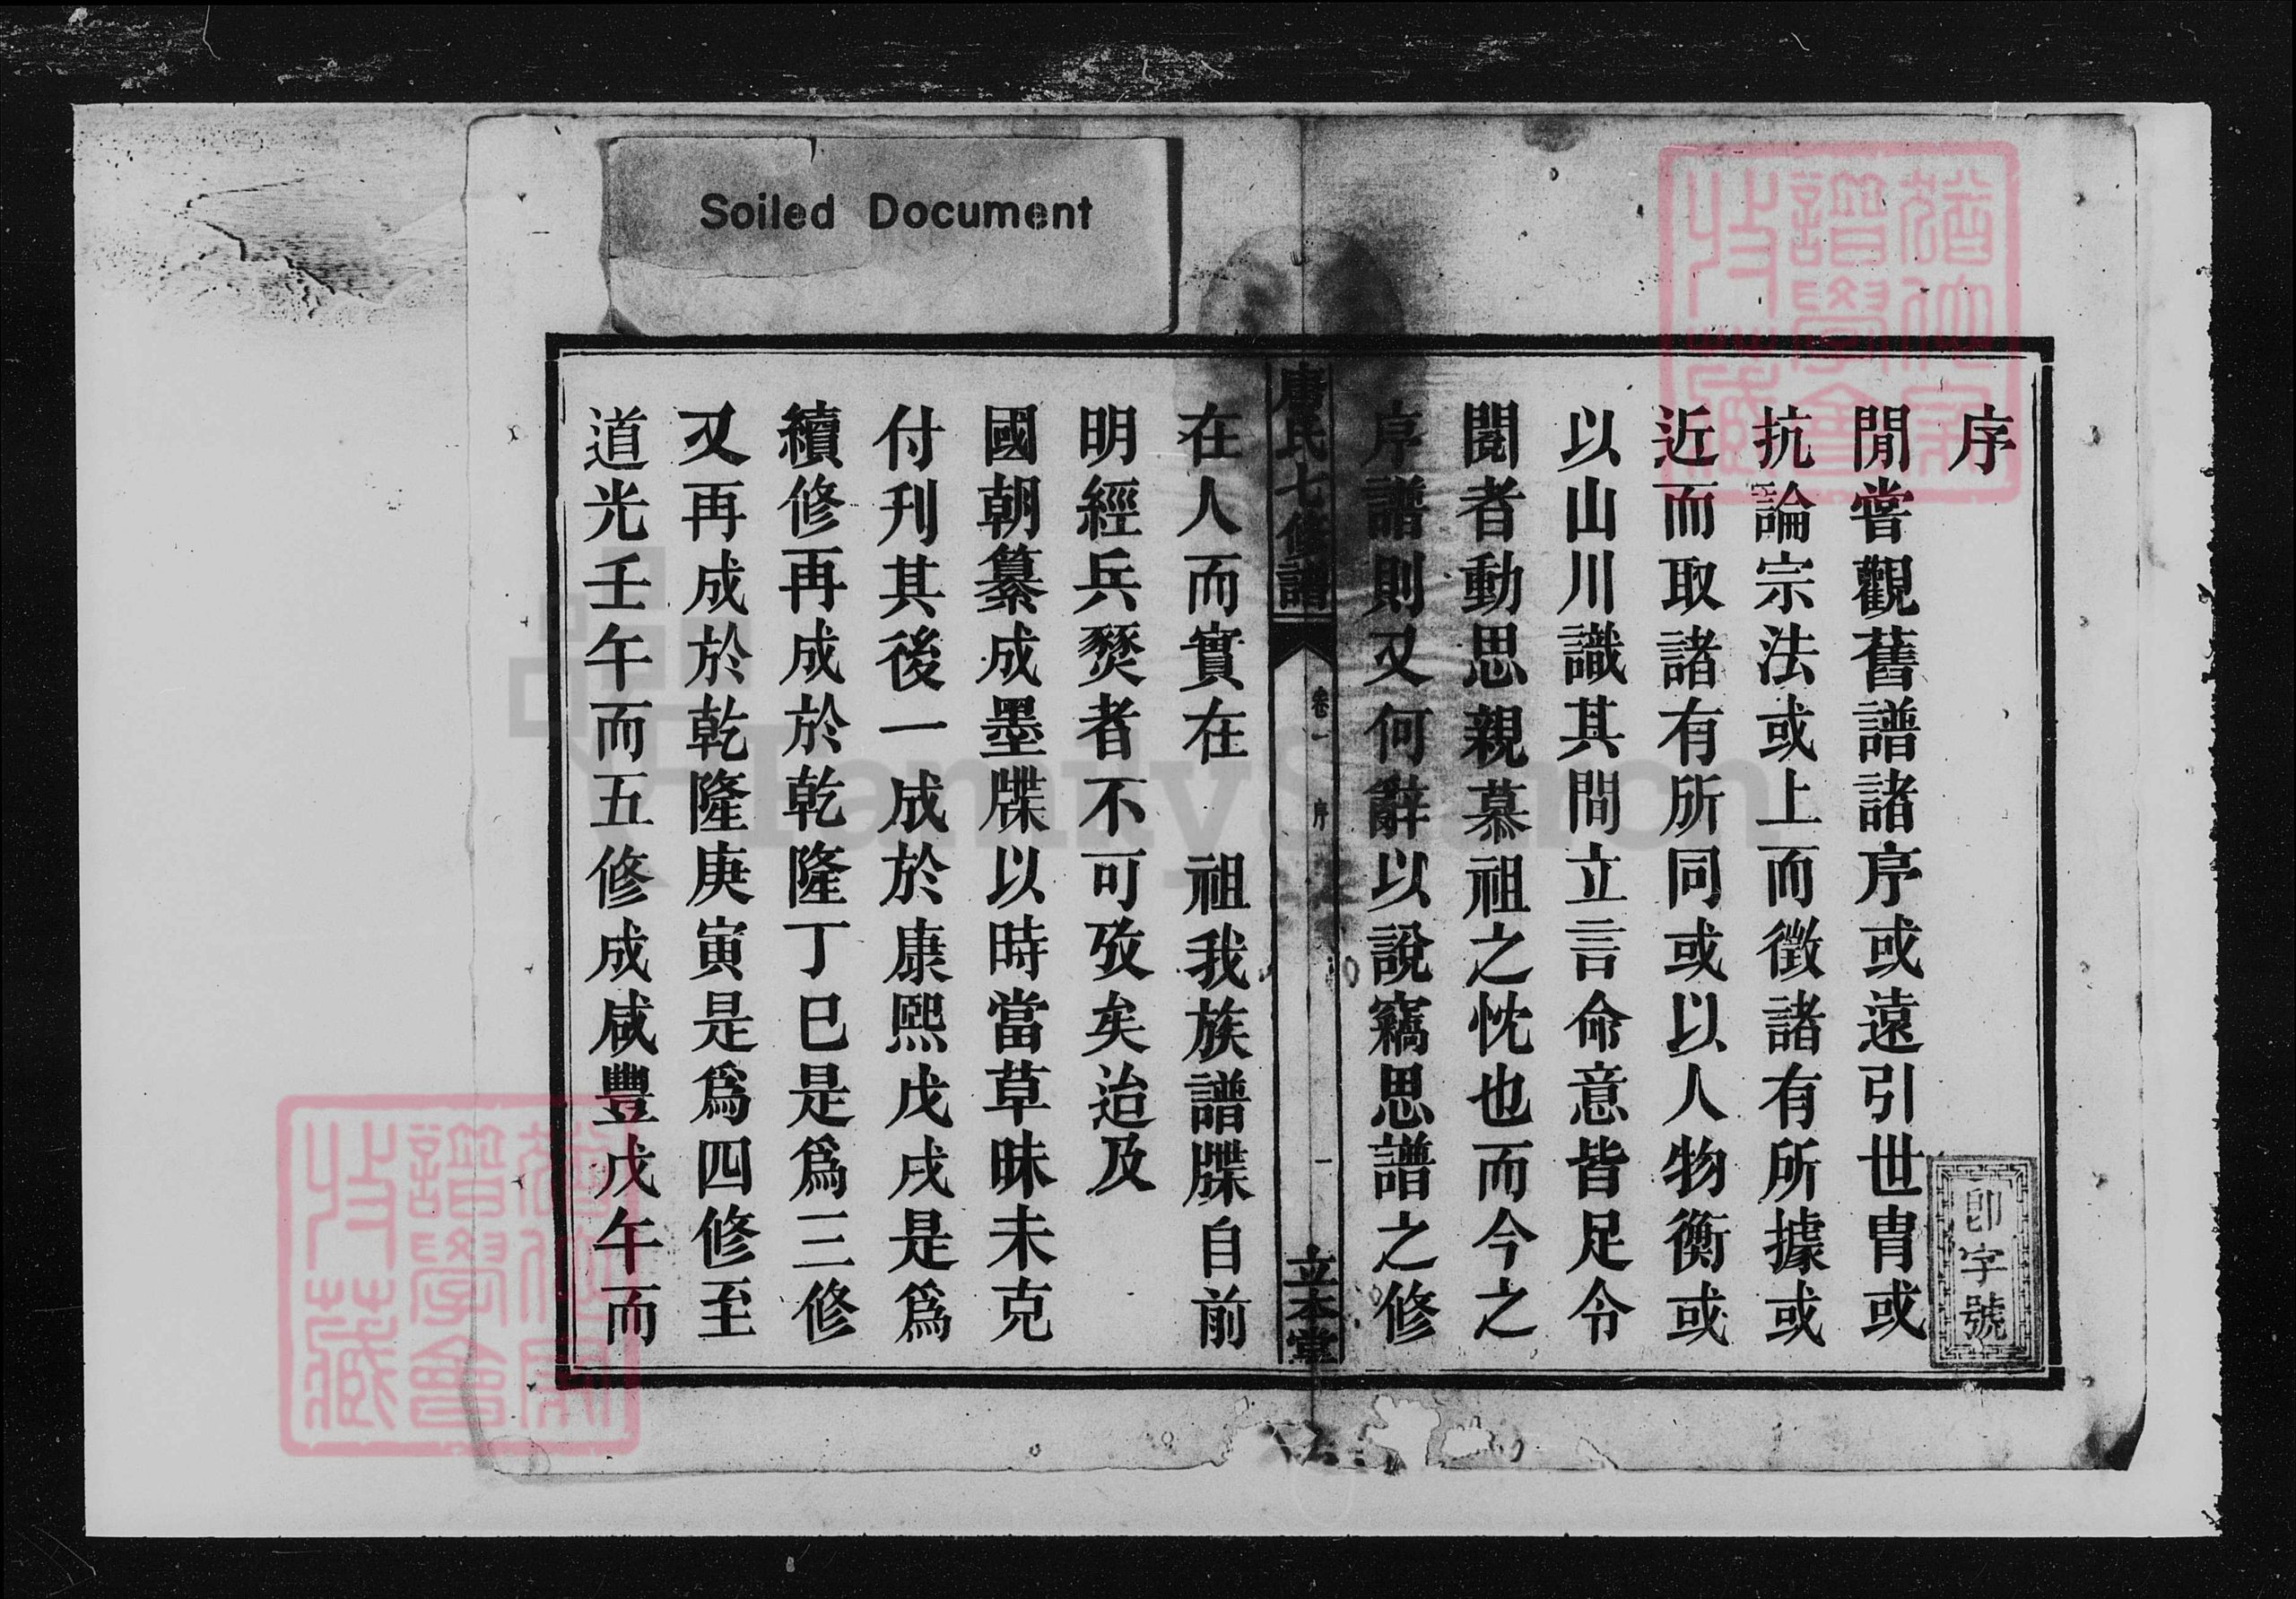 Soiled Document
序
閒嘗觀舊譜諸序或遠引世胄或
抗論宗法或上而徵諸有所據或
近而取諸有所同或以人物衡或
以山川識其間立言命意皆足令
閱者動思親慕祖之忱也而今之
序譜則又何辭以說竊思譜之修
唐氏七修譜
卷一
序
一
立本堂
在人而實在 祖我族譜牒自前
明經兵燹者不可攷矣迨及
國朝纂成墨牒以時當草昧未克
付刊其後一成於康熙戊戌是爲
續修再成於乾隆丁巳是爲三修
又再成於乾隆庚寅是爲四修至
道光壬午而五修成咸豐戊午而
印字號
譜學會
收藏
譜學會
收藏
FamilySearch